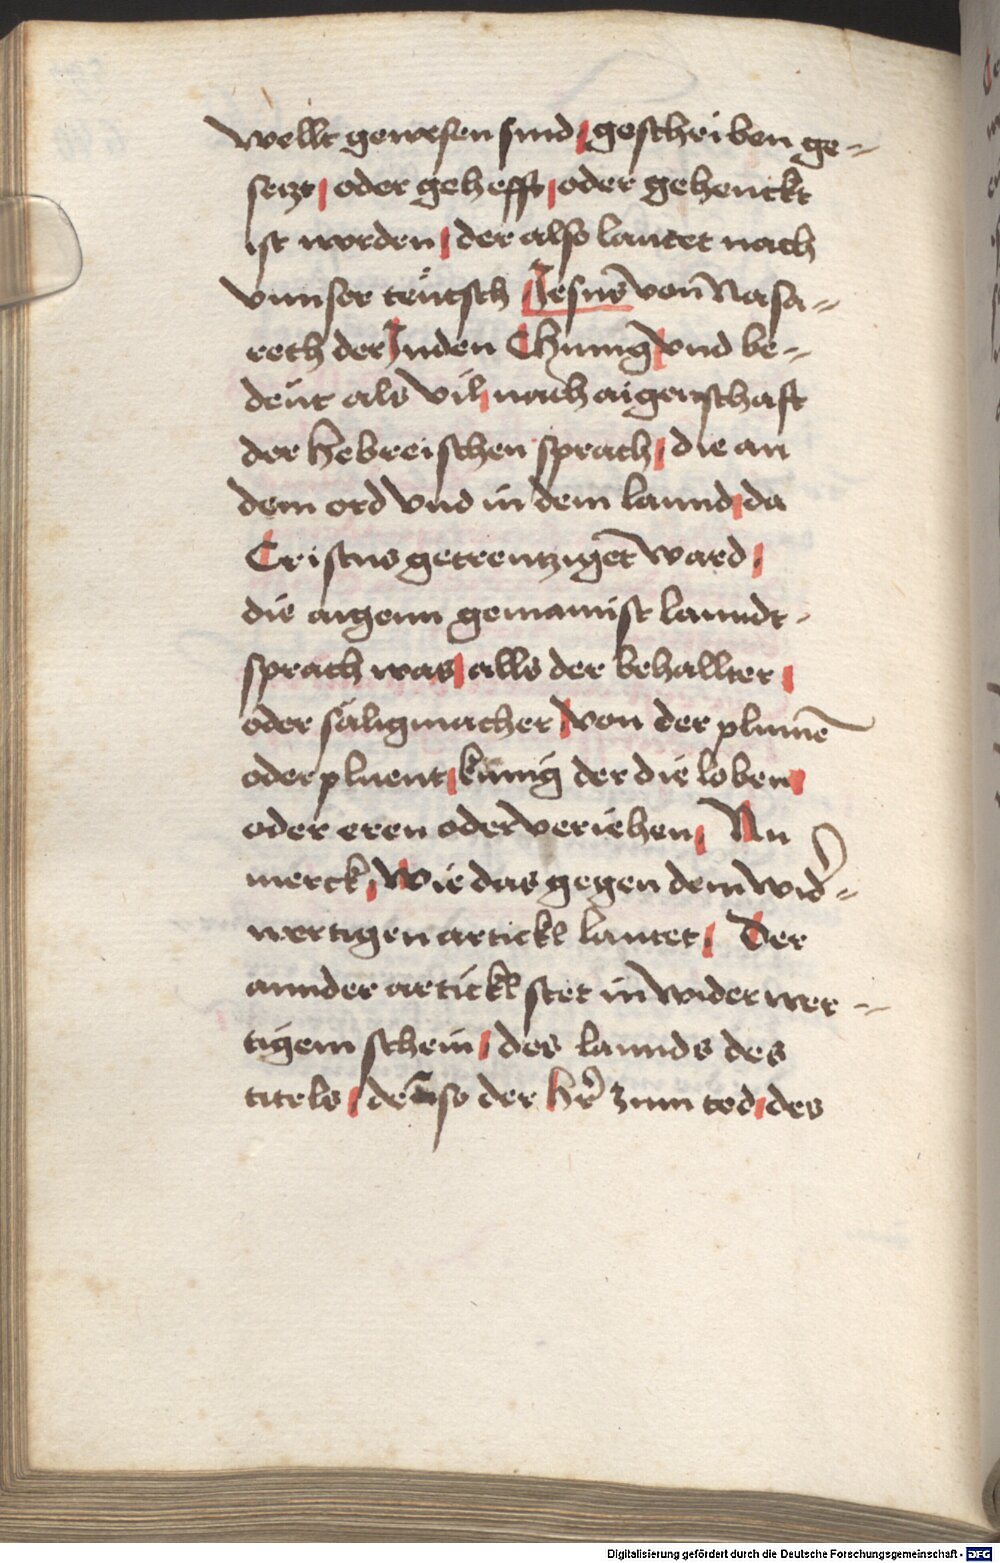 wellt gewesen sind / geschriben ge-
setzt / oder gehefft / oder gehenckt
ist worden / der also lautet nach
vnnser teůtsch Jesus von Nasa-
reth der Juden Chunig / vnd be-
deüt als vil / nach aigenschaft
der hebreischen sprach / die an
dem ord vnd in dem lannd / da
Cristus gecreutziget ward /
die aigenn gemainist lanndt-
sprach was / alls der behallter /
oder säligmacher / von der plumē
oder pluent / kunig der die loben /
oder eren oder veriehen / Nu
merck / Wie das gegen dem wid̄-
wertigen artickl lautet / Der
annder artickl stet in widerwer-
tigem schein / des lannds des
titels / so der hr̄ zum tod / des
Digitalisierung gefördert durch die Deutsche Forschungsgemeinschaft - DFG